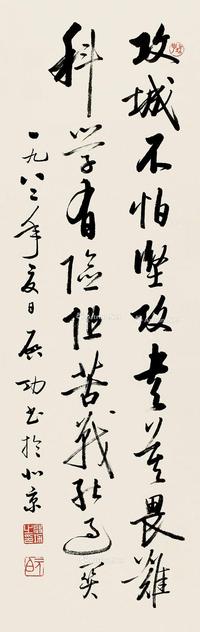 攻城不怕坚攻书莫畏难
科学有险阻苦战能过关
一九八二年夏日启功书于北京